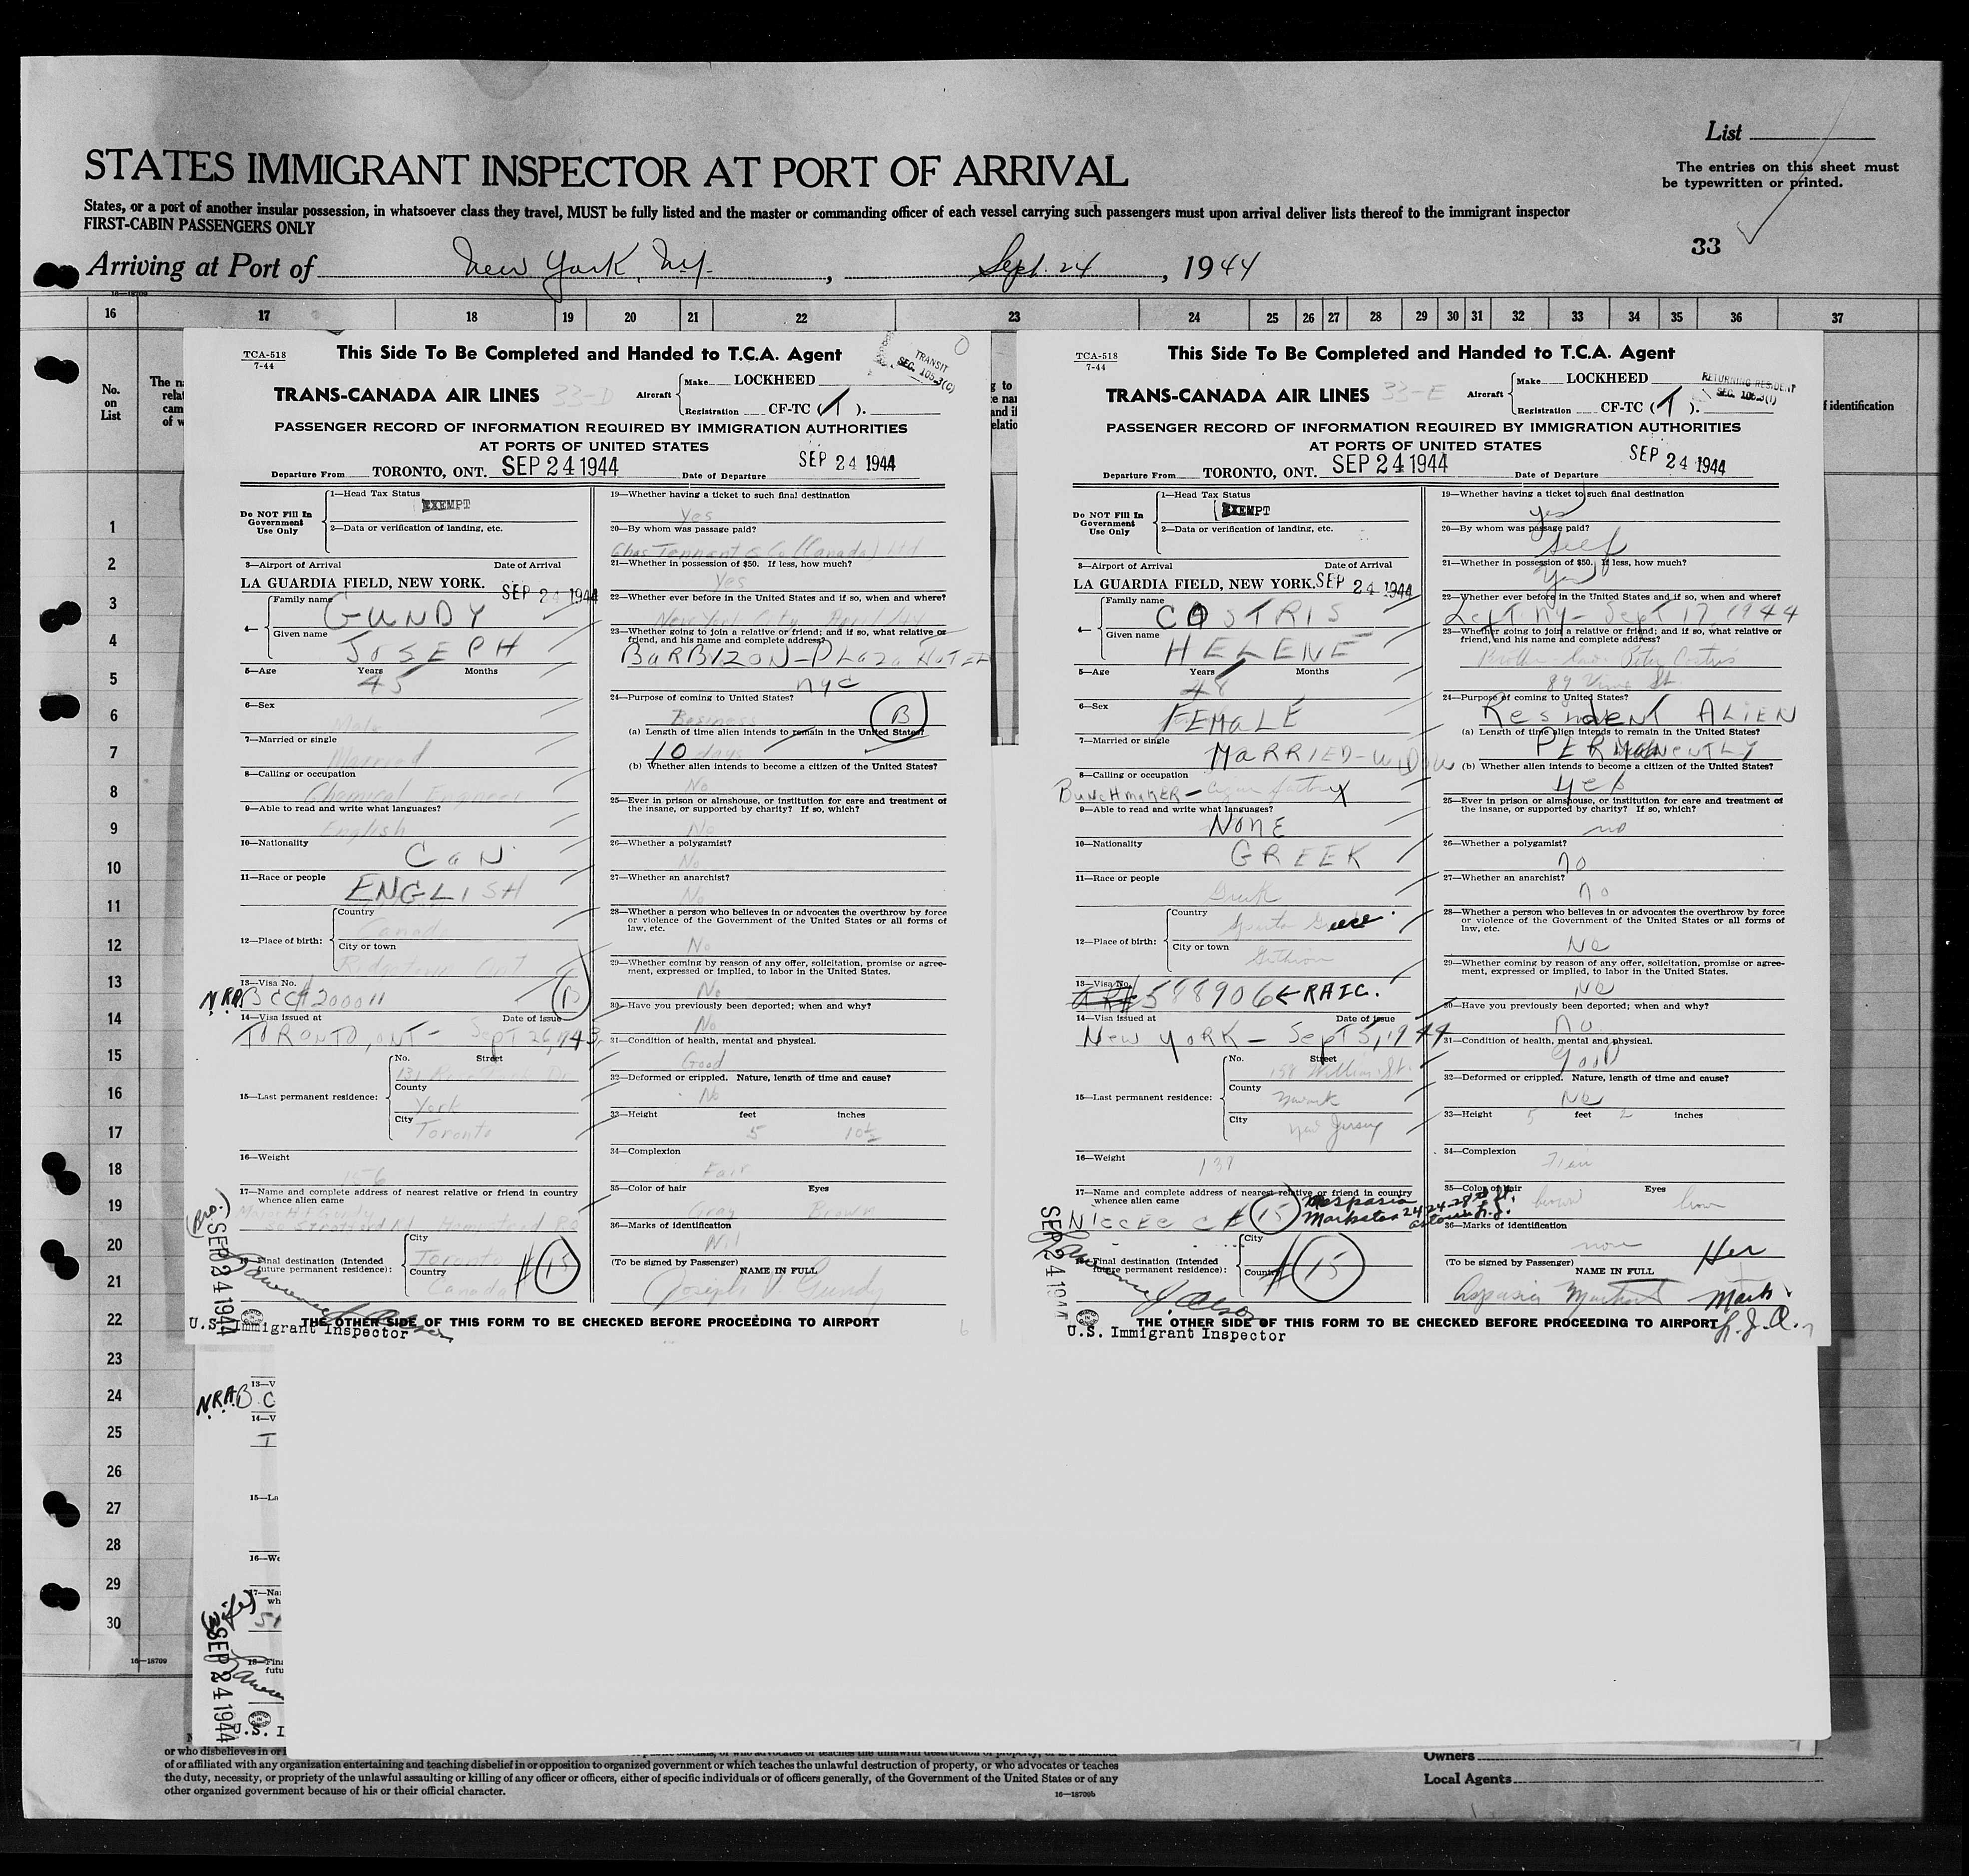 List
STATES IMMIGRANT INSPECTOR AT PORT OF ARRIVAL
The entries on this sheet must
be typewritten or printed.
States, or a port of another insular possession, in whatsoever class they travel, MUST be fully listed and the master or commanding officer of each vessel carrying such passengers must upon arrival deliver lists thereof to the immigrant inspector
FIRST-CABIN PASSENGERS ONLY
33
Arriving at Port of New York, N.Y., Sept. 24, 1944
16—18709
16 17 18 19 20 21 22 23 24 25 26 27 28 29 30 31 32 33 34 35 36 37
No.
on
List
of identification
1
2
3
4
5
6
7
8
9
10
11
12
13
14
15
16
17
18
19
20
21
22
23
24
25
26
27
28
29
30
16—18709
TCA-518
7-44
This Side To Be Completed and Handed to T.C.A. Agent
TRANSIT
SEC. 105.3(C)
TRANS-CANADA AIR LINES 33-D
Aircraft
Make LOCKHEED
Registration CF-TC (T).
PASSENGER RECORD OF INFORMATION REQUIRED BY IMMIGRATION AUTHORITIES
AT PORTS OF UNITED STATES
Departure From TORONTO, ONT. SEP 24 1944 Date of Departure SEP 24 1944
Do NOT Fill In
Government
Use Only
1—Head Tax Status
EXEMPT
2—Data or verification of landing, etc.
3—Airport of Arrival Date of Arrival
LA GUARDIA FIELD, NEW YORK. SEP 24 1944
4—
Family name GUNDY
Given name JOSEPH
5—Age Years Months
45
6—Sex
Male
7—Married or single
Married
8—Calling or occupation
Chemical Engineer
9—Able to read and write what languages?
English
10—Nationality
CAN
11—Race or people
ENGLISH
12—Place of birth:
Country
Canada
City or town
Ridgetown Ont
13—Visa No.
N.R.A. BCC# 200011
B
14—Visa issued at Date of issue
TORONTO, ONT - Sept 26, 1943
15—Last permanent residence:
No. Street
131
County
York
City
Toronto
16—Weight
156
17—Name and complete address of nearest relative or friend in country
whence alien came
(Bro.)
Major H F Gundy
18—Final destination (Intended
future permanent residence):
City
Toronto
Country
Canada
# 15
SEP 24 1944
U.S. Immigrant Inspector
19—Whether having a ticket to such final destination
Yes
20—By whom was passage paid?
Chas Tennant & Co (Canada) Ltd
21—Whether in possession of $50. If less, how much?
Yes
22—Whether ever before in the United States and if so, when and where?
New York City April/44
23—Whether going to join a relative or friend; and if so, what relative or
friend, and his name and complete address?
BARBIZON-PLAZA HOTEL
NYC
24—Purpose of coming to United States?
Business B
(a) Length of time alien intends to remain in the United States?
10 days
(b) Whether alien intends to become a citizen of the United States?
No
25—Ever in prison or almshouse, or institution for care and treatment of
the insane, or supported by charity? If so, which?
No
26—Whether a polygamist?
No
27—Whether an anarchist?
No
28—Whether a person who believes in or advocates the overthrow by force
or violence of the Government of the United States or all forms of
law, etc.
No
29—Whether coming by reason of any offer, solicitation, promise or agree-
ment, expressed or implied, to labor in the United States.
No
30—Have you previously been deported; when and why?
No
31—Condition of health, mental and physical.
Good
32—Deformed or crippled. Nature, length of time and cause?
No
33—Height feet inches
5 10½
34—Complexion
Fair
35—Color of hair Eyes
Gray Brown
36—Marks of identification
Nil
(To be signed by Passenger) NAME IN FULL
Joseph V. Gundy
THE OTHER SIDE OF THIS FORM TO BE CHECKED BEFORE PROCEEDING TO AIRPORT
TCA-518
7-44
This Side To Be Completed and Handed to T.C.A. Agent
TRANS-CANADA AIR LINES 33-E
Aircraft
Make LOCKHEED
Registration CF-TC (T).
RETURNING RESIDENT
SEC. 105.3(1)
PASSENGER RECORD OF INFORMATION REQUIRED BY IMMIGRATION AUTHORITIES
AT PORTS OF UNITED STATES
Departure From TORONTO, ONT. SEP 24 1944 Date of Departure SEP 24 1944
Do NOT Fill In
Government
Use Only
1—Head Tax Status
EXEMPT
2—Data or verification of landing, etc.
3—Airport of Arrival Date of Arrival
LA GUARDIA FIELD, NEW YORK. SEP 24 1944
4—
Family name COSTRIS
Given name HELENE
5—Age Years Months
48
6—Sex
FEMALE
7—Married or single
MARRIED-WIDOW
8—Calling or occupation
BUNCHMAKER - Cigar factory
9—Able to read and write what languages?
NONE
10—Nationality
GREEK
11—Race or people
Greek
12—Place of birth:
Country
Sparta Greece
City or town
Githion
13—Visa No.
AR# 588906 ← RAIC.
14—Visa issued at Date of issue
New York - Sept 5, 1944
15—Last permanent residence:
No. Street
158 William St.
County
Newark
City
New Jersey
16—Weight
17—Name and complete address of nearest relative or friend in country
whence alien came
15
24-24-28th St.
18—Final destination (Intended
future permanent residence):
City
Country
# 15
SEP 24 1944
U.S. Immigrant Inspector
19—Whether having a ticket to such final destination
Yes
20—By whom was passage paid?
Self
21—Whether in possession of $50. If less, how much?
Yes
22—Whether ever before in the United States and if so, when and where?
Left NY - Sept 17, 1944
23—Whether going to join a relative or friend; and if so, what relative or
friend, and his name and complete address?
Brother-law Peter Costris
89 Vine St.
24—Purpose of coming to United States?
Resident ALIEN
(a) Length of time alien intends to remain in the United States?
PERMANENTLY
(b) Whether alien intends to become a citizen of the United States?
Yes
25—Ever in prison or almshouse, or institution for care and treatment of
the insane, or supported by charity? If so, which?
no
26—Whether a polygamist?
no
27—Whether an anarchist?
no
28—Whether a person who believes in or advocates the overthrow by force
or violence of the Government of the United States or all forms of
law, etc.
No
29—Whether coming by reason of any offer, solicitation, promise or agree-
ment, expressed or implied, to labor in the United States.
No
30—Have you previously been deported; when and why?
no
31—Condition of health, mental and physical.
Good
32—Deformed or crippled. Nature, length of time and cause?
No
33—Height 5 feet 2 inches
34—Complexion
35—Color of hair Eyes
brown brown
36—Marks of identification
none
(To be signed by Passenger) NAME IN FULL
Her
Mark
L.J.O.
THE OTHER SIDE OF THIS FORM TO BE CHECKED BEFORE PROCEEDING TO AIRPORT
13—V
N.R.A. B C
14—V
T
15—La
16—We
17—Na
wh
(Wife)
18—Fin
futu
SEP 24 1944
U.S. I
or who disbelieves in or
of or affiliated with any organization entertaining and teaching disbelief in or opposition to organized government or which teaches the unlawful destruction of property, or who advocates or teaches
the duty, necessity, or propriety of the unlawful assaulting or killing of any officer or officers, either of specific individuals or of officers generally, of the Government of the United States or of any
other organized government because of his or their official character.
16—18709b
Owners
Local Agents